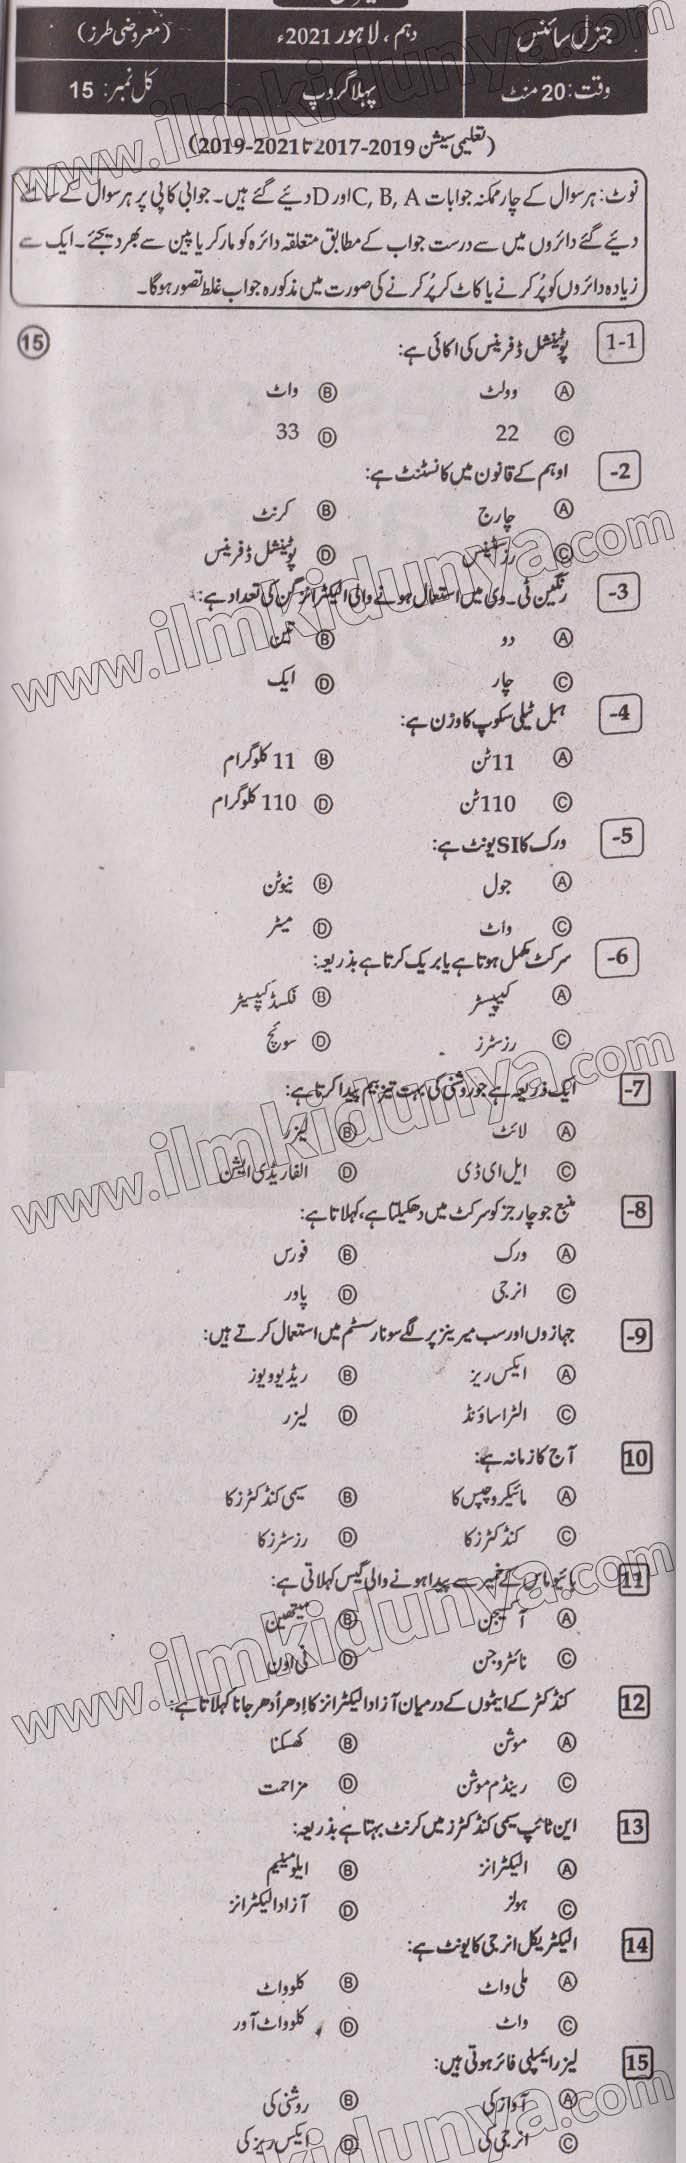 جنرل سائنس
دہم ، لاہور 2021ء
(معروضی طرز)
وقت: 20 منٹ
پہلا گروپ
کل نمبر: 15
(تعلیمی سیشن 2019-2017 تا 2021-2019)
نوٹ: ہر سوال کے چار ممکنہ جوابات C, B, A اور D دیئے گئے ہیں۔ جوابی کاپی پر ہر سوال کے سامنے
دیئے گئے دائروں میں سے درست جواب کے مطابق متعلقہ دائرہ کو مارکر یا پین سے بھر دیجئے۔ ایک سے
زیادہ دائروں کو پُر کرنے یا کاٹ کر پُر کرنے کی صورت میں مذکورہ جواب غلط تصور ہوگا۔
1-1 پوٹینشل ڈفرینس کی اکائی ہے: 15
A وولٹ B واٹ
C 22 D 33
-2 اوہم کے قانون میں کانسٹنٹ ہے:
A چارج B کرنٹ
C رزسٹینس D پوٹینشل ڈفرینس
-3 رنگین ٹی۔وی میں استعمال ہونے والی الیکٹرانز گن کی تعداد ہے:
A دو B تین
C چار D ایک
-4 ہبل ٹیلی سکوپ کا وزن ہے:
A 11 ٹن B 11 کلوگرام
C 110 ٹن D 110 کلوگرام
-5 ورک کا SI یونٹ ہے:
A جول B نیوٹن
C واٹ D میٹر
-6 سرکٹ مکمل ہوتا ہے یا بریک کرتا ہے بذریعہ:
A کیپیسٹر B فکسڈ کیپسیٹر
C رزسٹرز D سوئچ
-7 ایک ذریعہ ہے جو روشنی کی بہت تیز بیم پیدا کرتا ہے:
A لائٹ B لیزر
C ایل ای ڈی D الفا ریڈی ایشن
-8 منبع جو چارجز کو سرکٹ میں دھکیلتا ہے، کہلاتا ہے:
A ورک B فورس
C انرجی D پاور
-9 جہازوں اور سب میرینز پر لگے سونار سسٹم میں استعمال کرتے ہیں:
A ایکس ریز B ریڈیو ویوز
C الٹراساؤنڈ D لیزر
10 آج کا زمانہ ہے:
A مائیکروچپس کا B سیمی کنڈکٹرز کا
C کنڈکٹرز کا D رزسٹرز کا
11 بائیو ماس کے خمیر سے پیدا ہونے والی گیس کہلاتی ہے:
A آکسیجن B میتھین
C نائٹروجن D نی اون
12 کنڈکٹر کے ایٹموں کے درمیان آزاد الیکٹرانز کا اِدھر اُدھر جانا کہلاتا ہے:
A موشن B کھسکنا
C رینڈم موشن D مزاحمت
13 این ٹائپ سیمی کنڈکٹرز میں کرنٹ بہتا ہے بذریعہ:
A الیکٹرانز B ایلومینیم
C ہولز D آزاد الیکٹرانز
14 الیکٹریکل انرجی کا یونٹ ہے:
A ملی واٹ B کلوواٹ
C واٹ D کلوواٹ آور
15 لیزر ایمپلی فائر ہوتی ہیں:
A آواز کی B روشنی کی
C انرجی کی D ایکس ریز کی
www.ilmkidunya.com
www.ilmkidunya.com
www.ilmkidunya.com
www.ilmkidunya.com